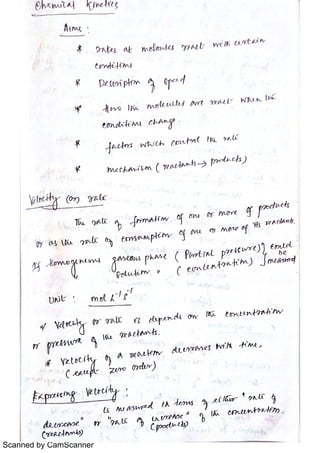 Chemical Kinetics
Aims :
* rates at molecules react with certain
conditions
* Description of speed
* How the molecules are react when the
conditions change.
* factors which control the rate
* mechanism ( reactants → products )
Velocity (or) rate
The rate of formation of one or more of products
or as the rate of consumption of one or more of its reactants.
If homogenous gaseous phase ( Partial pressure ) } could be measured
solution " ( concentration )
Unit : mol L⁻¹ s⁻¹
* Velocity or rate is depends on the concentration
or pressure of the reactants.
* Velocity of a reaction decreases with time,
( except zero order )
Expressing Velocity :
is measured in terms of either "rate of
decrease" or "rate of increase" of the concentration.
(reactants) (products)
Scanned by CamScanner